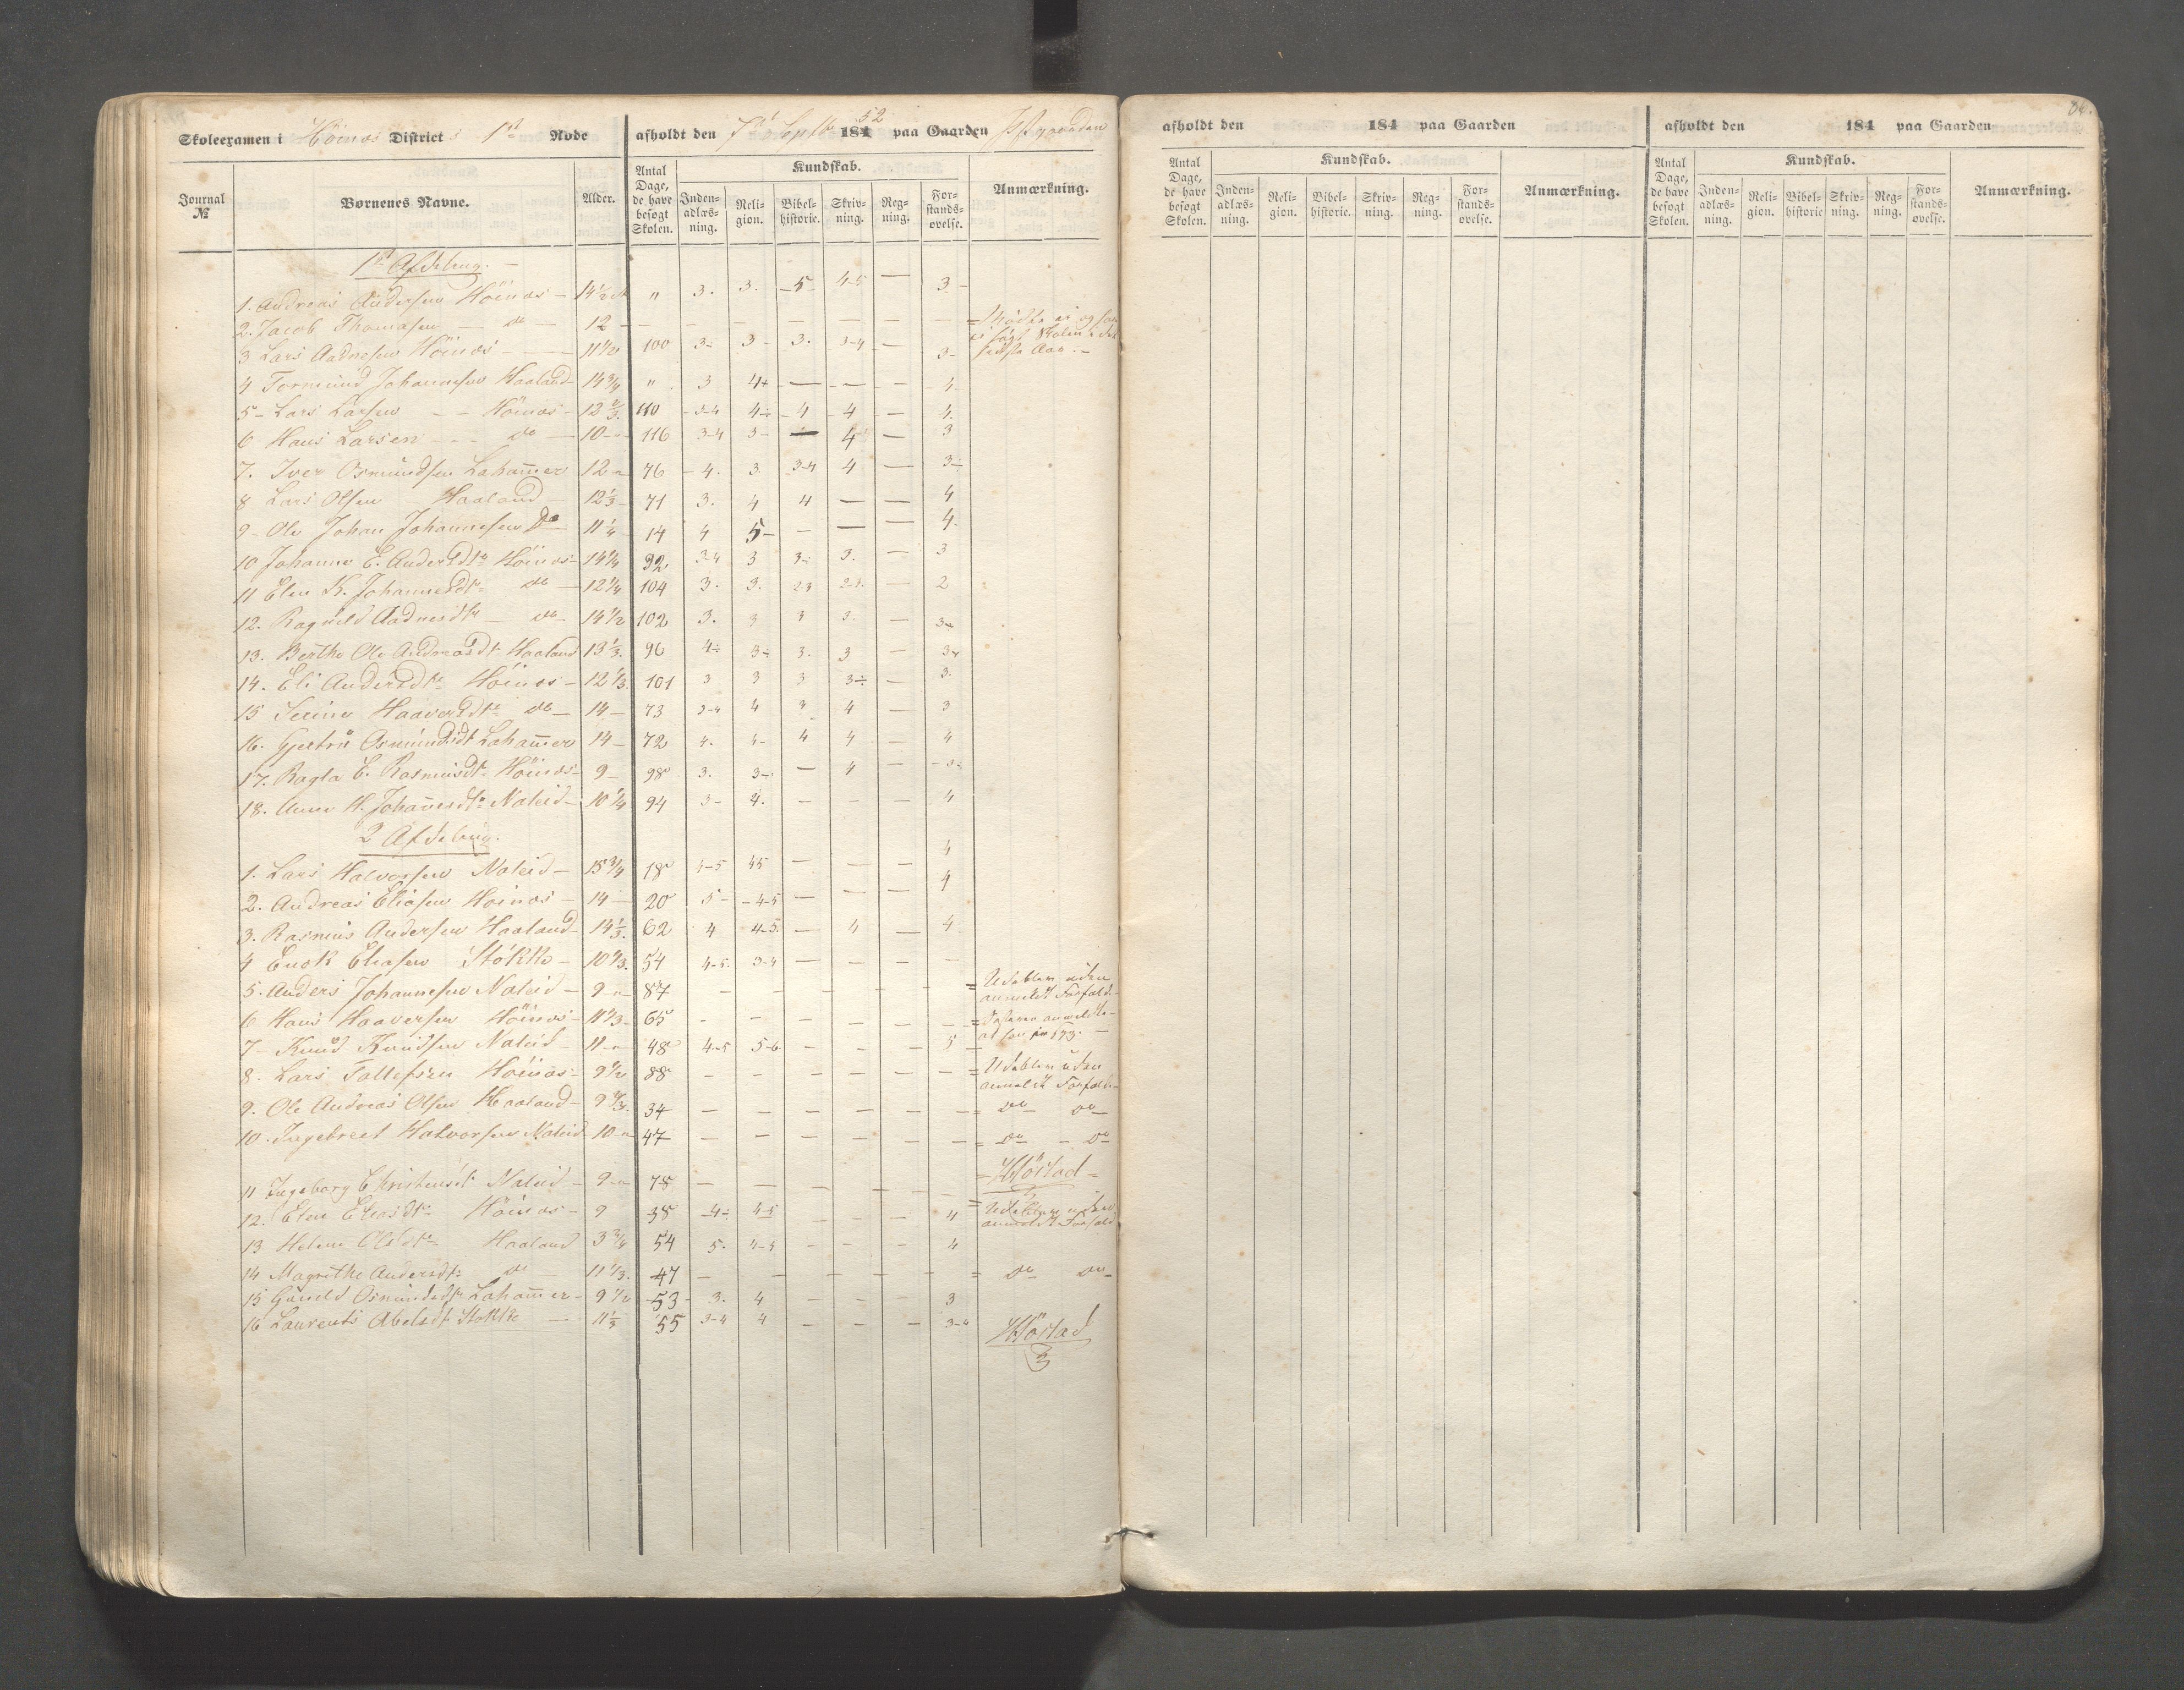 Skoleexamen i Höinos District 1st Rode
afholdt den 7de Septbr 1852 paa Gaarden
Journal № Børnenes Navne. Alder. Antal Dage, de have besøgt Skolen. Kundskab. Anmærkning.
Inden-adlæs-ning. Reli-gion. Bibel-historie. Skriv-ning. Reg-ning. For-stands-øvelse.
1st Afdeling.
1. Andreas Andersen Höinos - 14 1/2 " 3. 3. - 5 4-5 — 3 -
2. Jacob Thomasen — do — 12 - - - - - - - -
3 Lars Aadnesen Höinos - 11 1/2 100 3÷ 3 - 3. 3-4 — 3-
4 Tormund Johannesen Haaland 14 3/4 " 3 4+ — — - 4.
5 - Lars Larsen - - Höinos - 12 2/3. 110 - 3-4 4÷ - 4 - 4 — 4.
6 Hans Larsen - - - do — 10 - 116 3-4 3 - — 4 — 3
7. Iver Osmundsen Lahammer 12 - 76 - 4. 3. 3-4 4 — 3÷
8 Lars Olsen Haaland 12 1/3 - 71 3. 4 4 — — 4
9 - Ole Johan Johannesen Do 11 1/4 14 4 5 - - — — 4.
10 Johanne E. Andersdtr Höinos - 14 1/4 92 3-4 3 3÷ 3. — 3
11 Elen K. Johannesdtr do — 12 1/4 104 3. 3. 2 3 2-3. — 2
12. Ragnild Aadnesdtr - do - 14 1/2 102 3. 3 3 3. —
13. Berthe Ole Andreasdtr Haaland 13 1/3. 96 4÷ 3÷ 3. 3 —
14. Eli Andersdtr Höinos - 12 1/3. 101 3 3 3 3÷ - 3.
15 Serine Haaversdtr do — 14 - 73 3-4 4 3 4 — 3
16. Gjertru Osmundsdt Lahammer 14 - 72 4. 4 - 4 4 — 4
17. Ragla E. Rasmusdtr Höinos - 9 - 98 3. 3 - — 4 —
18. Anne H. Johannesdtr Naleid - 10 1/4 94 3 - 4. - - - 4
2 Afdeling.
1. Lars Halvorsen Naleid - 15 3/4 18 4-5 4 5 — — — 4
2. Andreas Eliasen Höinos - 14 - 20 5 - - 4-5 — — — 4
3. Rasmus Andersen Haaland 14 1/3. 62 4 4-5. — 4 — 4
4 Enok Eliasen Stokke - 10 1/3. 54 4-5. 3-4 — - - -
5. Anders Johannesen Naleid - 9 - 87 - - - - - - = Udebleven uden anmeldt Forfald -
6 Hans Haaversen Höinos - 11 1/3 - 65 - - - - - - =
7 - Knud Knudsen Naleid - 11 - 48 4-5 5-6 - - - 5
8. Lars Tollefsen Höinos - 9 1/2 88 - - - - - - = Udebleven uden anmeldt Forfald -
9. Ole Andreas Olsen Haaland - 34 - - - - - - = do do
10. Ingebreet Halvorsen Naleid 10 - 47 - - - - - - = Do - Do
11 Ingeborg Christensdt Naleid - 9 - 78 - - - - - -
12. Elen Eliasdtr Höinos - 9 38 - 4÷ 4-5 - - - 4 = Udebleven uden anmeldt Forfald
13 Helene Olsdtr Haaland 54 5. 4-5 - - - 4
14 Magrethe Andersdtr do 11 1/3. 47 - - - - - = Do Do
15 Gunild Osmundsdtr Lahammer - 9 1/2 53 - 3. 4 - - - 3
16 Laurents Abelsdt Stokke — 11 1/3 55 3-4 4 - - - 3-4
afholdt den 184 paa Gaarden
Antal Dage, de have besøgt Skolen. Kundskab. Anmærkning.
Inden-adlæs-ning. Reli-gion. Bibel-historie. Skriv-ning. Reg-ning. For-stands-øvelse.
afholdt den 184 paa Gaarden
Antal Dage, de have besøgt Skolen. Kundskab. Anmærkning.
Inden-adlæs-ning. Reli-gion. Bibel-historie Skriv-ning. Reg-ning. For-stands-øvelse.